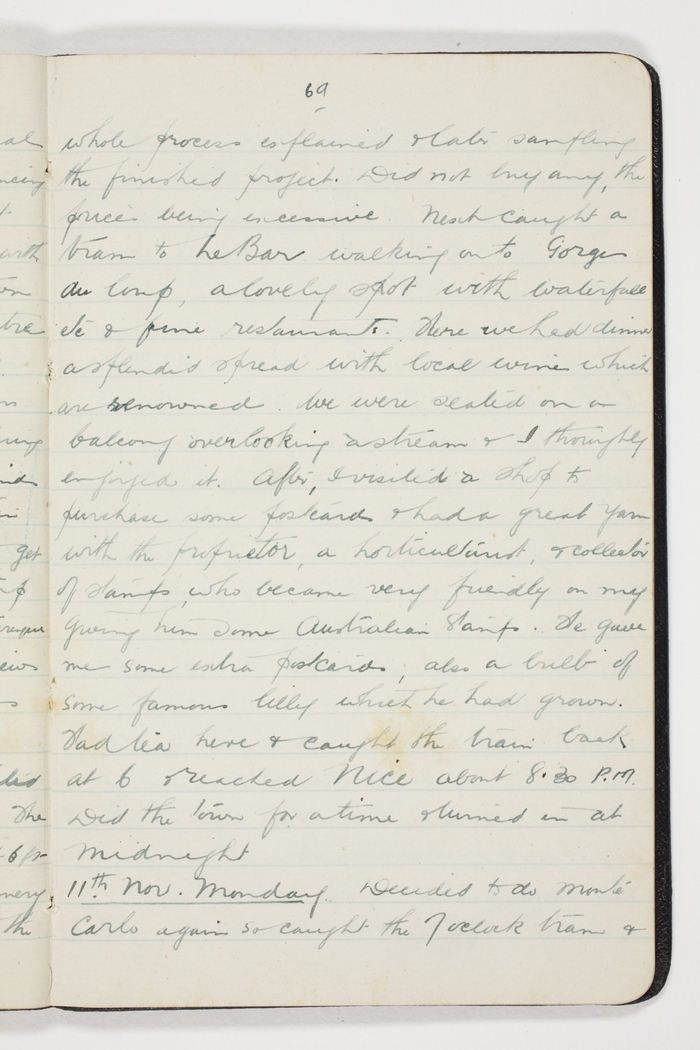 69
whole process explained & later sampling
the finished project. Did not buy any, the
prices being excessive. Next caught a
tram to Le Bar walking on to Gorges
du loup, a lovely spot with waterfall
etc & fine restaurants. Here we had dinner
a splendid spread with local wine which
are renowned. We were seated on a
balcony overlooking a stream & I thoroughly
enjoyed it. After, I visited a shop to
purchase some postcards & had a great yarn
with the proprietor, a horticulturist, & collector
of stamps, who became very friendly on my
giving him some Australian Stamps. He gave
me some extra postcards, also a bulb of
some famous lilly which he had grown.
Had tea here & caught the train back
at 6 & reached Nice about 8.30 P.M.
Did the town for a time & turned in at
Midnight
11th Nov. Monday. Decided to do Monte
Carlo again so caught the 7 oclock tram &
al
ncing
with
tre
get
views
The
the